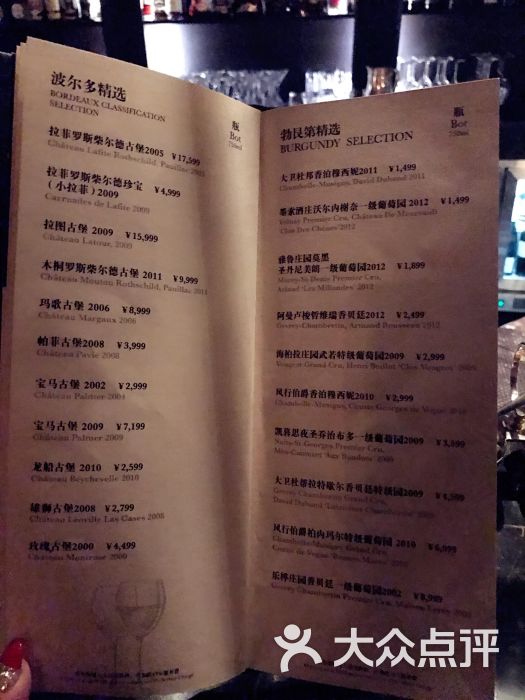 波尔多精选
BORDEAUX CLASSIFICATION
SELECTION
瓶
Bot
750ml
拉菲罗斯柴尔德古堡2005 ¥17,599
Château Lafite Rothschild, Pauillac 2005
拉菲罗斯柴尔德珍宝
（小拉菲）2009 ¥4,999
Carruades de Lafite 2009
拉图古堡 2009 ¥15,999
Château Latour, 2009
木桐罗斯柴尔德古堡 2011 ¥9,999
Château Mouton Rothschild, Pauillac 2011
玛歌古堡 2006 ¥8,999
Château Margaux 2006
帕菲古堡2008 ¥3,999
Château Pavie 2008
宝马古堡 2002 ¥2,999
Château Palmer
宝马古堡 2009 ¥7,199
Château Palmer 2009
龙船古堡 2010 ¥2,599
Château Beychevelle 2010
雄狮古堡2008 ¥2,799
Château Léoville Las Cases 2008
玫瑰古堡2000 ¥4,499
Château Montrose 2000
勃艮第精选
BURGUNDY SELECTION
瓶
Bot
750ml
大卫杜邦香泊穆西妮2011 ¥1,499
Chambolle-Musigny, David Duband 2011
墨索酒庄沃尔内榭奈一级葡萄园 2012 ¥1,499
Volnay Premier Cru, Château De Meursault
Clos Des Chênes 2012
雅鲁庄园莫黑
圣丹尼美朗一级葡萄园2012 ¥1,899
Morey-St Denis Premier Cru,
Arlaud 'Les Millandes' 2012
阿曼卢梭哲维瑞香贝廷2012 ¥2,499
Gevrey-Chambertin, Armand Rousseau 2012
海柏拉庄园武若特级葡萄园2009 ¥2,999
Vougeot Grand Cru, Henri Boillot 'Clos Vougeot' 2009
风行伯爵香泊穆西妮2010 ¥2,999
Chambolle-Musigny, Comte Georges de Vogue 2010
凯慕思夜圣乔治布多一级葡萄园2009 ¥3,899
Nuits-St Georges Premier Cru,
大卫杜邦拉特歇尔香贝廷特级园2009 ¥4,599
Gevrey Chambertin Grand Cru,
David Duband 2009
风行伯爵柏内玛尔特级葡萄园 2010 ¥6,999
Chambolle-Musigny Grand Cru,
乐桦庄园香贝廷一级葡萄园2002 ¥8,999
Gevrey Chambertin Premier Cru, Maison Leroy 2002
大众点评